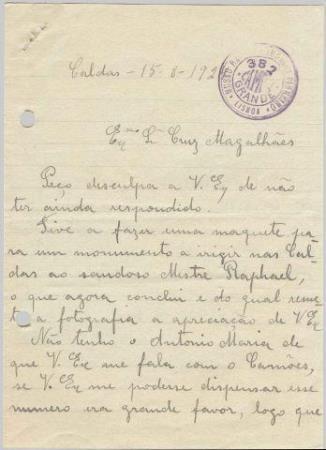 Caldas - 15-6-192
382
GRANDE
LISBOA
Exmo Sr Cruz Magalhães
Peço desculpa a V. Ex de não
ter ainda respondido.
Tive a fazer uma maquete pa-
ra um monumento a irigir nas Cal-
das ao saudoso Mestre Raphael,
o que agora conclui e do qual
a fotografia a apreciação de V. Ex
Não tenho o Antonio Maria de
que V. Ex me fala com o Camões,
se V. Ex me podesse dispensar esse
numero era grande favor, logo que